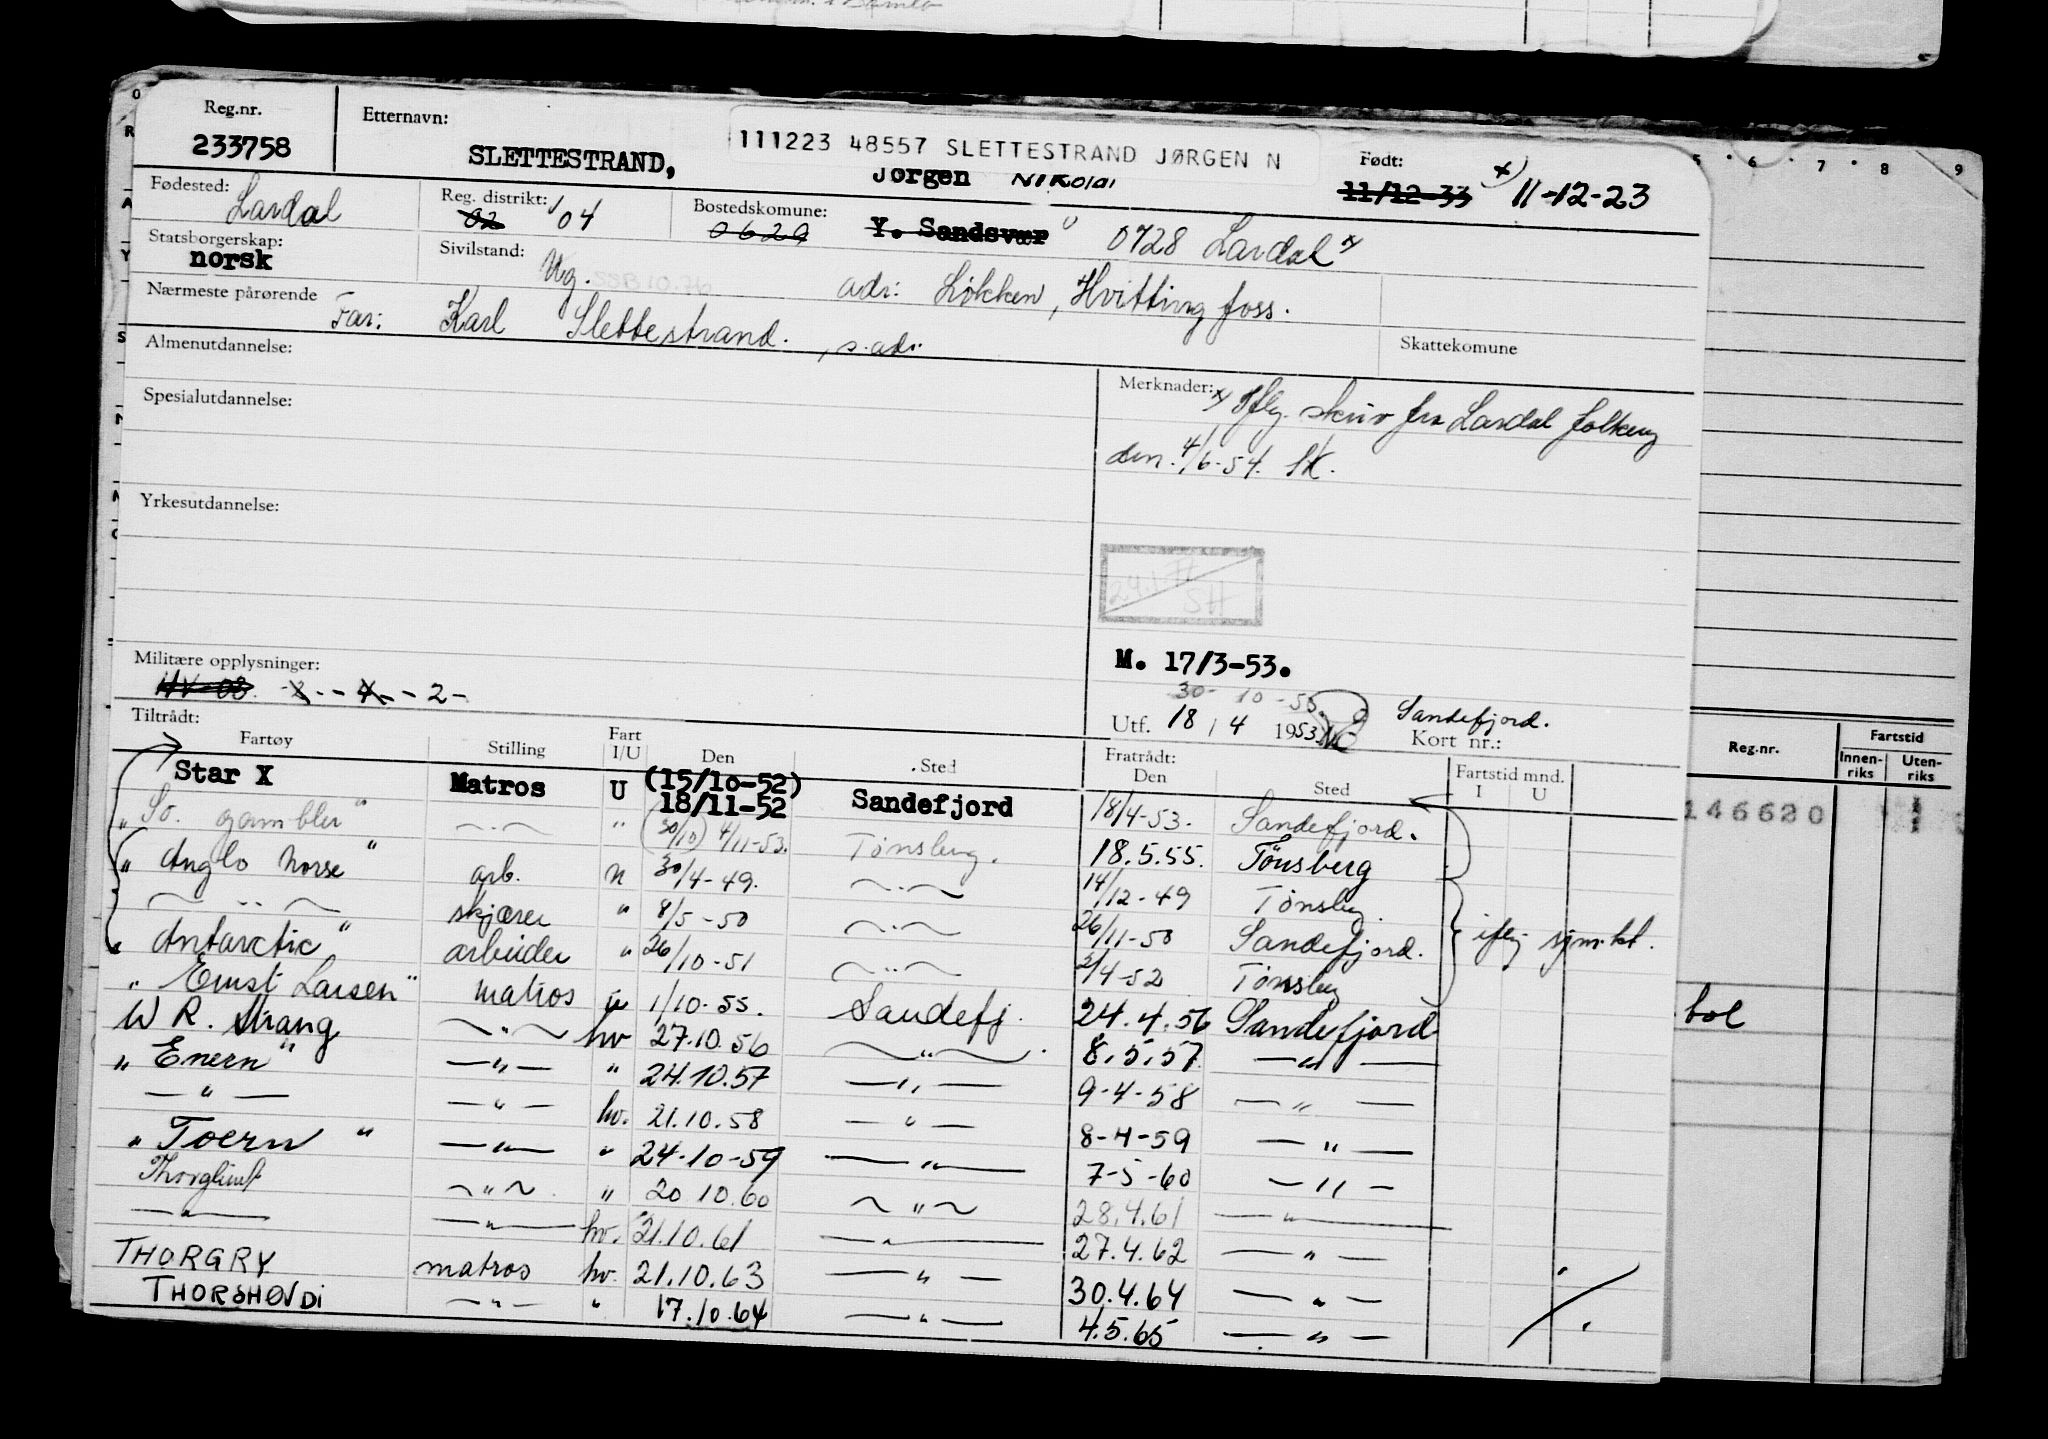 Reg.nr.
233758
Etternavn:
SLETTESTRAND,
111223 48557 SLETTESTRAND JØRGEN N
Jørgen Nikolai
Født:
11/12-33 x) 11-12-23
Fødested:
Lardal
Reg. distrikt:
02 04
Bostedskommune:
0629 Y. Sandsvær 0728 Lardal x)
Statsborgerskap:
norsk
Sivilstand:
Ug.
SSB 10.76
adr: Løkken, Hvittingfoss.
Nærmeste pårørende
Far: Karl Slettestrand. , s. adr.
Skattekomune
Almenutdannelse:
Spesialutdannelse:
Merknader:
x) Iflg. skriv fra Lardal folkereg
den. 4/6-54. SK.
Yrkesutdannelse:
SH
M. 17/3-53.
30-10-53.
Utf. 18/4 1953 Sandefjord.
Kort nr.:
Militære opplysninger:
2-
Tiltrådt:
Fartøy Stilling Fart I/U Den Sted
Fratrådt:
Den Sted Fartstid mnd. I U
Star X Matros U (15/10-52) 18/11-52 Sandefjord 18/4-53. Sandefjord.
" So. gambler " —..— " (30/10) 4/11-53. Tønsberg. 18.5.55. Tønsberg
" Anglo Norse " arb. n 30/4-49. —..— 14/12-49 Tønsberg.
—..— skjærer " 8/5-50 —..— 26/11-50 Sandefjord. iflg sjm.kt.
" Antarctic " arbeider " 26/10-51 —..— 2/4-52 Tønsberg
" Ernst Larsen " matros u 1/10-55. Sandefj. 24.4.56 Sandefjord
W R. Strang —"— hv 27.10.56 —"— 8.5.57 —"—
" Enern " —"— " 24.10.57 —"— 9-4-58 —"—
—"— —"— hv. 21.10.58 —"— 8-4-59 —"—
" Toern " —"— " 24-10-59 —"— 7-5-60 —"—
Thorglimt —"— " 20 10.60 —"— 28.4.61 —"—
—"— —"— hv. 21.10.61 —"— 27.4.62 —"—
THORGRY matros hv. 21.10.63 —"— 30.4.64 —"—
THORSHØVDI —"— " 17.10.64 —"— 4.5.65 —"—
6 7 8 9
Reg.nr.
Fartstid
Innen-riks Uten-riks
146620